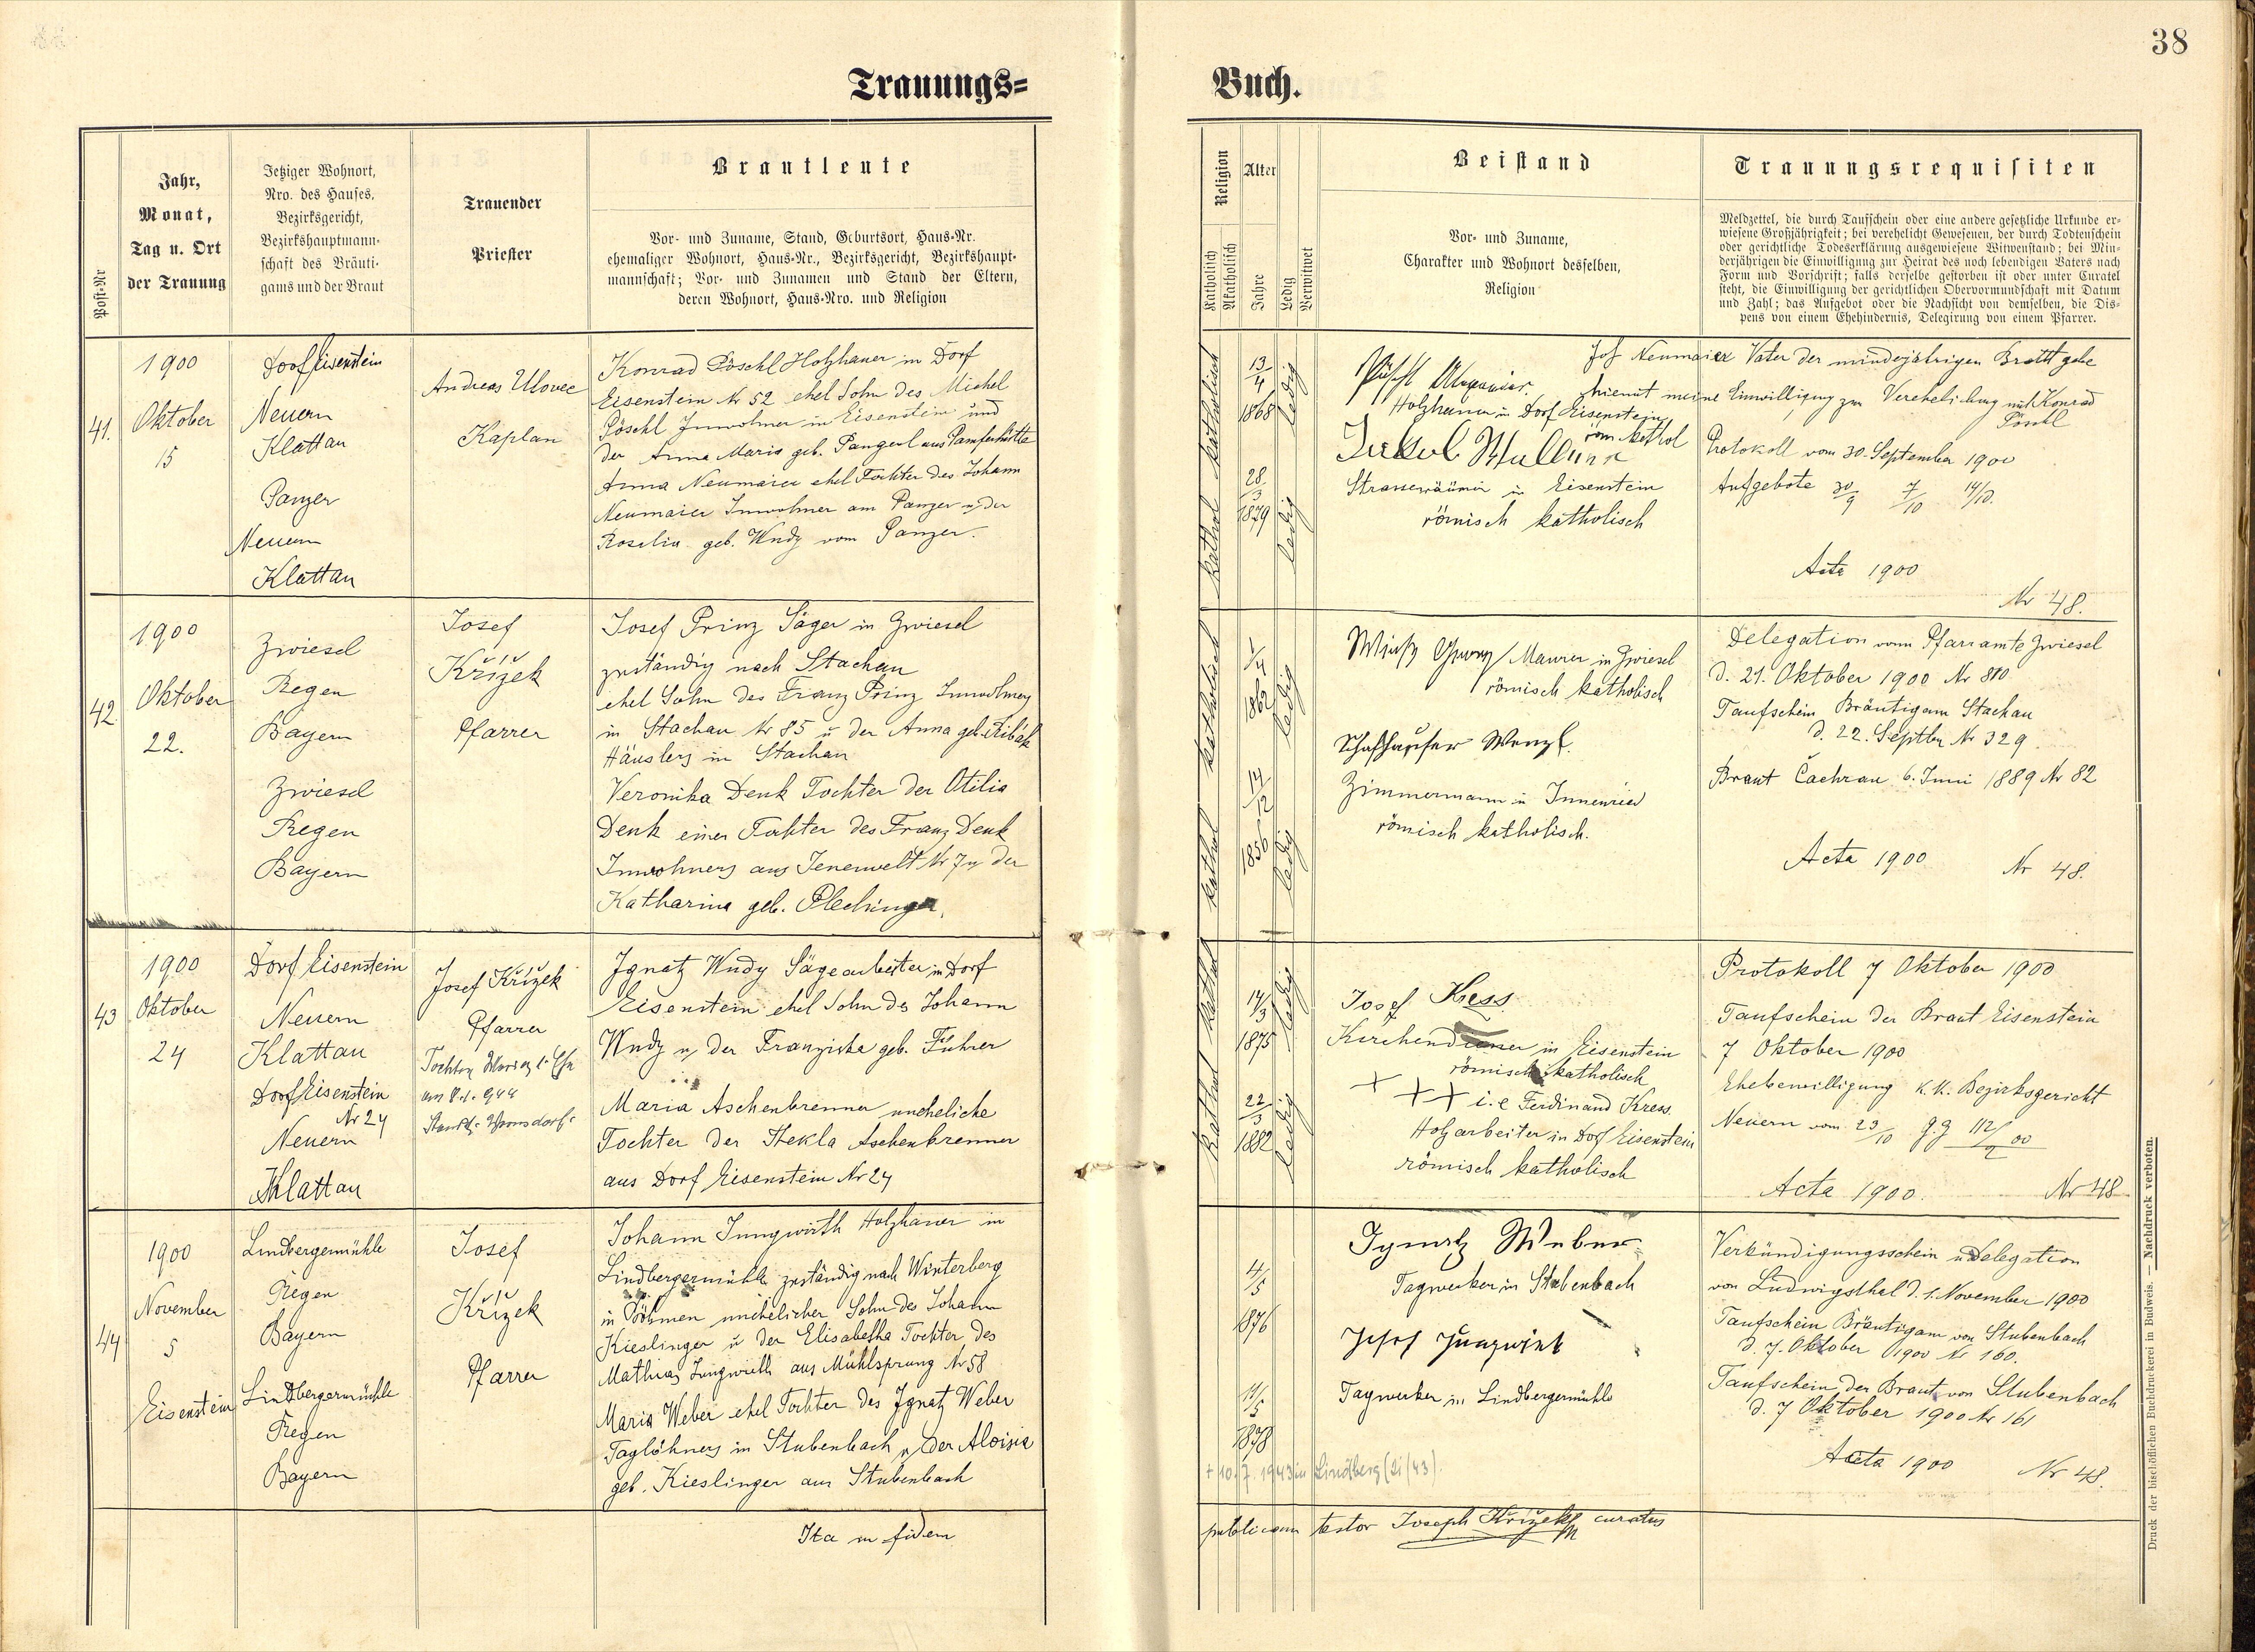 38
Trauungs=
Buch.
Post-Nr
Jahr,
Monat,
Tag u. Ort
der Trauung
Jetziger Wohnort,
Nro. des Hauses,
Bezirksgericht,
Bezirkshauptmann-
schaft des Bräuti-
gams und der Braut
Trauender
Priester
Brautleute
Vor- und Zuname, Stand, Geburtsort, Haus-Nr.
ehemaliger Wohnort, Haus-Nr., Bezirksgericht, Bezirkshaupt-
mannschaft; Vor- und Zunamen und Stand der Eltern,
deren Wohnort, Haus-Nro. und Religion
Religion
Katholisch
Akatholisch
Alter
Jahre
Ledig
Verwitwet
Beistand
Vor- und Zuname,
Charakter und Wohnort desselben,
Religion
Trauungsrequisiten
Meldzettel, die durch Taufschein oder eine andere gesetzliche Urkunde er-
wiesene Großjährigkeit; bei verehelicht Gewesenen, der durch Todtenschein
oder gerichtliche Todeserklärung ausgewiesene Witwenstand; bei Min-
derjährigen die Einwilligung zur Heirat des noch lebendigen Vaters nach
Form und Vorschrift; falls derselbe gestorben ist oder unter Curatel
steht, die Einwilligung der gerichtlichen Obervormundschaft mit Datum
und Zahl; das Aufgebot oder die Nachsicht von demselben, die Dis-
pens von einem Ehehindernis, Delegirung von einem Pfarrer.
41.
1900
Oktober
15
Dorf Eisenstein
Neuern
Klattau
Panzer
Neuern
Klattau
Andreas Ulovec
Kaplan
Konrad Pöschl Holzhauer in Dorf
Eisenstein Nr 52 ehel Sohn des Michel
Pöschl Inwohner in Eisenstein und
der Anna Maria geb. Pangerl aus Pamferhütte
Anna Neumaier ehel Tochter des Johann
Neumaier Inwohner am Panzer u der
Rosalia geb. Wudy vom Panzer.
kathol katholisch
13/4
1868
ledig
28/3
1879
ledig
Holzhauer in Dorf Eisenstein
röm kathol
Strassenräumer in Eisenstein
römisch katholisch
Jos Neumaier Vater der minderjährigen Braut gebe
hiemit meine Einwilligung zur Verehelichung mit Konrad
Pöschl
Protokoll vom 30. September 1900
Aufgebote 30/9 7/10 14/10.
Acta 1900
Nr 48.
42.
1900
Oktober
22.
Zwiesel
Regen
Bayern
Zwiesel
Regen
Bayern
Josef
Křížek
Pfarrer
Josef Prinz Säger in Zwiesel
zuständig nach Stachau
ehel Sohn des Franz Prinz Inwohners
in Stachau Nr 85 u der Anna geb.
Häuslers in Stachau
Veronika Denk Tochter der Otilia
Denk einer Tochter des Franz Denk
Inwohners aus Jenewelt Nr 7 u der
Katharina geb. Plechinger.
kathol katholisch
1/4
1862
ledig
14/12
1856
ledig
Maurer in Zwiesel
römisch katholisch
Schafhauser Wenzl.
Zimmermann in Innenried
römisch katholisch.
Delegation vom Pfarramte Zwiesel
d. 21. Oktober 1900 Nr 810
Taufschein Bräutigam Stachau
d. 22. Septber Nr 329.
Braut Čachrau 6. Juni 1889 Nr 82
Acta 1900
Nr 48.
43
1900
Oktober
24
Dorf Eisenstein
Neuern
Klattau
Dorf Eisenstein
Nr 24
Neuern
Klattau
Josef Křížek
Pfarrer
Ignatz Wudy Sägearbeiter in Dorf
Eisenstein ehel Sohn des Johann
Wudy u der Franziska geb. Führer
Maria Aschenbrenner uneheliche
Tochter der Thekla Aschenbrenner
aus Dorf Eisenstein Nr 24
kathol kathol
14/3
1875
ledig
22/3
1882
ledig
Josef Kress
Kirchendiener in Eisenstein
römisch katholisch
+ + + i.e Ferdinand Kress.
Holzarbeiter in Dorf Eisenstein
römisch katholisch
Protokoll 7 Oktober 1900
Taufschein der Braut Eisenstein
7 Oktober 1900
Ehebewilligung k.k. Bezirksgericht
Neuern vom 23/10
Acta 1900.
Nr 48
44
1900
November
5
Eisenstein
Lindbergermühle
Regen
Bayern
Lindbergermühle
Regen
Bayern
Josef
Křížek
Pfarrer
Johann Jungwirth Holzhauer in
Lindbergermühle zuständig nach Winterberg
in Böhmen unehelicher Sohn des Johann
Kieslinger u der Elisabetha Tochter des
Mathias Jungwirth aus Mühlsprung Nr 58
Maria Weber ehel Tochter des Ignatz Weber
Taglöhners in Stubenbach u der Aloisia
geb. Kieslinger aus Stubenbach
4/5
1876
11/5
1878
+ 10.7.1943 in Lindberg (21/43).
Ignatz Weber
Tagwerker in Stubenbach
Josef Jungwirt
Tagwerker in Lindbergermühle
Verkündigungsschein u Delegation
von Ludwigsthal d. 1. November 1900
Taufschein Bräutigam von Stubenbach
d. 7. Oktober 1900 Nr 160.
Taufschein der Braut von Stubenbach
d. 7 Oktober 1900 Nr 161
Acta 1900
Nr 48.
Ita in fidem
publicam testor Joseph Křížek curatus
Druck der bischöflichen Buchdruckerei in Budweis. — Nachdruck verboten.